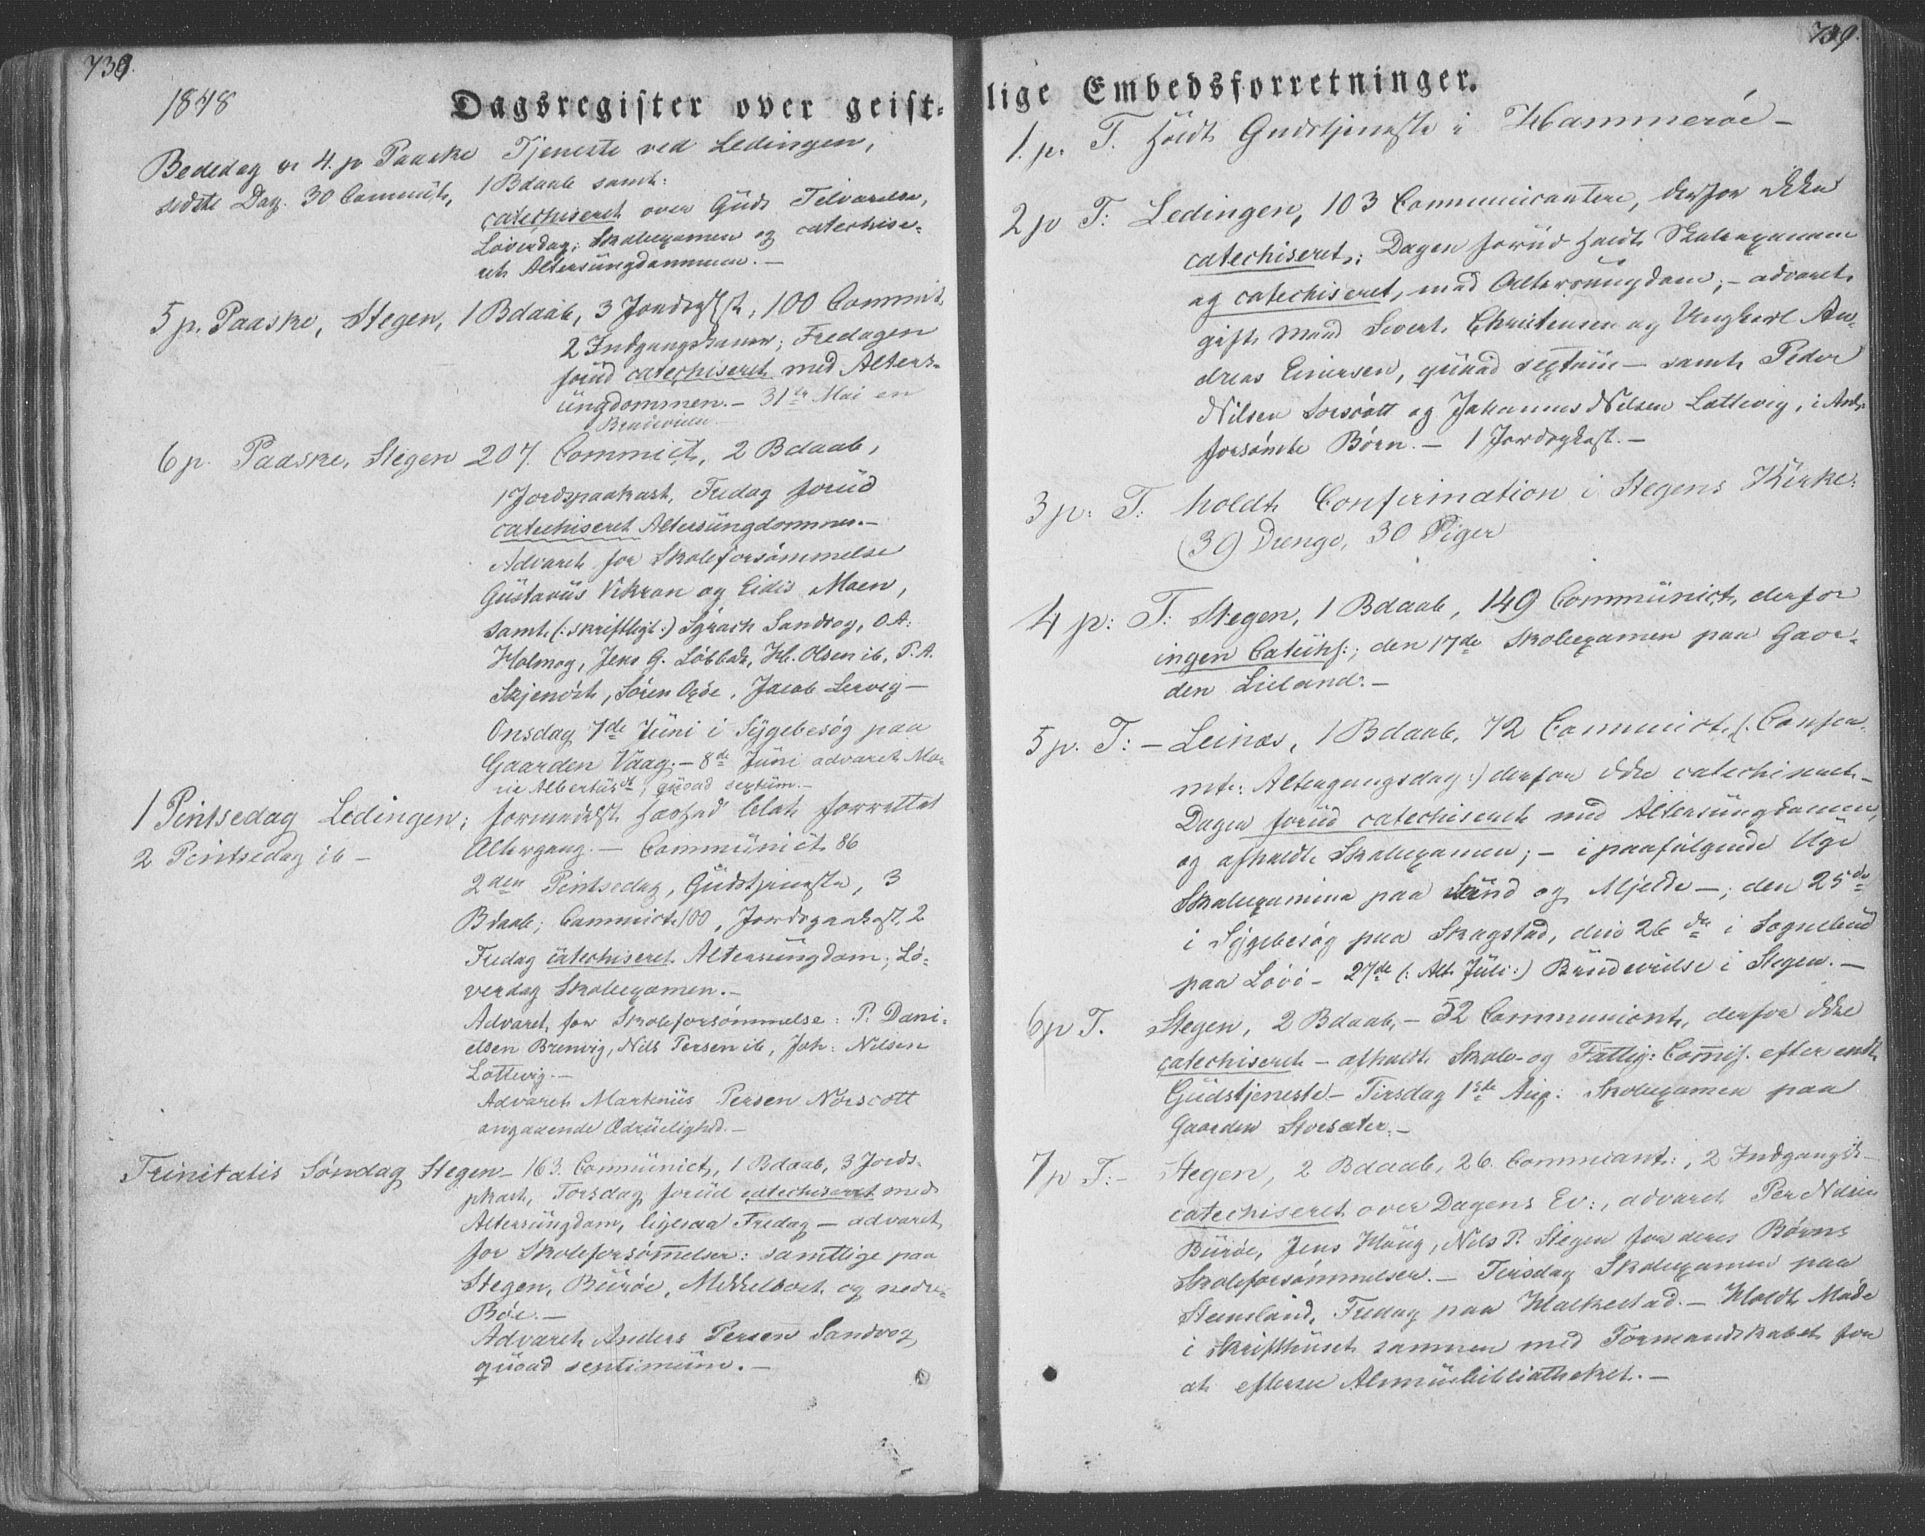 739.
1848
Dagsregister over geist-
Bededag og 4. p Paaske Tjeneste ved Ledingen,
sidste Dag. 30 Commit, 1 Bdaab samt.
catechiseret over Guds Tilværelse,
Løverdag: Skoleexamen og catechise-
ret Altersungdommen.—
5 p. Paaske, Stegen, 1 Bdaab, 3 Jordsgkst, 100 Commit.
2 Indgangskoner; Fredagen
forud catechiseret med Alters-
ungdommen.— 31te Mai en
Brudevielse
6 p. Paaske, Stegen 207. Commict, 2 Bdaab,
1 Jordspaakast, Fredag forud
catechiseret Altersungdommen.—
Advaret for Skoleforsømmelse
Gustavus Vikran og Eidis Moen,
samt (: skriftligt :) Sÿrach Sandvog, O A:
Holmog, Jens G. Løbbak, H. Olsen ib, P. A.
Skjenøst, Søren Oxøe, Jacob Lervig—
Onsdag 7de Juni i Sÿgebesøg paa
Gaarden Vaag.— 8de Juni advaret Ma-
rie Albertusdt, quoad septum.—
1 Pintsedag Ledingen; formedelst Havhed blot forrettet
2 Pintsedag ib — Altergang.— Communict 86
2den Pintsedag, Gudstjeneste, 3
Bdaab; Commict 100, Jordspaakast, 2
Fredag catechiseret Altersungdom; Lø-
verdag Skoleexamen.—
Advaret for Skoleforsømmelse: P. Dani-
elsen Brenvig, Nils Persen ib, Joh: Nilsen
Lottevig.—
Advaret Markus Persen Norscott
angaaende Ædruelighed.—
Trinitatis Søndag Stegen— 163. Communict, 1 Bdaab, 3 Jords-
pkast, Torsdag forud catechiseret med
Altersungdom, ligesaa Fredag— advaret
for Skoleforsømelser: samtlige paa
Stegen, Burøe, Mikkelbost og nedre-
Bøe.—
Advaret Anders Persen Sandvog
quoad septimum.—
739.
lige Embedsforretninger.
1. p. T. Holdt Gudstjeneste i Hammerøe—
2 p T: Ledingen, 103 Communicantere, derfor ikke
catechiseret; Dagen forud holdt Skoleexamen
og catechiseret, med Altersungdom; — advaret
gift Mand Sivert Christensen og Ungkarl An-
dreas Einersen, quoad sextum— samt Peder
Nilsen Sorscott og Johannes Nilsen Lottevig, i Anl.
forsømte Børn.— 1 Jordspkast.—
3 p. T. holdt Confirmation i Stegens Kirke:
(39 Drenge, 30 Piger
4 p: T: Stegen, 1 Bdaab, 149 Communict, derfor
ingen Catechs:; den 17de Skoleexamen paa Gaar-
den Lieland.—
5 p. T: — Leines, 1 Bdaab, 72 Communict, (: Confir-
mte: Altergangsdag:) derfor ikke catechiseret—
Dagen forud catechiseret med Altersungdommen,
og afholdt Skoleexamen; — i paafølgende Uge
Skoleexamina paa Sund og Mjelde—; den 25de
i Sÿgebesøg paa Skagstad, den 26de i Sognebud
paa Løvø— 27de (: Alt Juli :) Brudevielse i Stegen.—
6 p T. Stegen, 2 Bdaab,— 52 Communicant, derfor ikke
catechiseret— afholdt Skole- og Fattig: Comis. efter endt
Gudstjeneste— Tirsdag 1ste Aug: Skoleexamen paa
Gaarden Storsæter.—
7 p T:— Stegen, 2 Bdaab, 26. Commicant:, 2 Indgangsk—
catechiseret over Dagens Ev:, advaret Per Nilsen
Burøe, Jens Houg, Nils P. Stegen for deres Børns
Skoleforsømmelser.— Tirsdag Skoleexamen paa
Stemsland, Fredag paa Halkestad.— Holdt Møde
i Skrifthuset sammen med Formandskabet for
at eftersee Almuebibliotheket.—